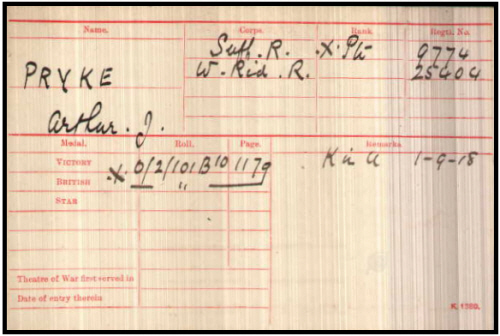 Name. Corps. Rank. Regtl. No.
Suff. R. .X. Pte 9774
PRYKE W. Rid. R. 25404
Arthur. J.
Medal. Roll. Page. Remarks
VICTORY X. O/2/101B10 1179 K in A 1-9-18
BRITISH "
STAR
Theatre of War first served in
Date of entry therein
K. 1380.